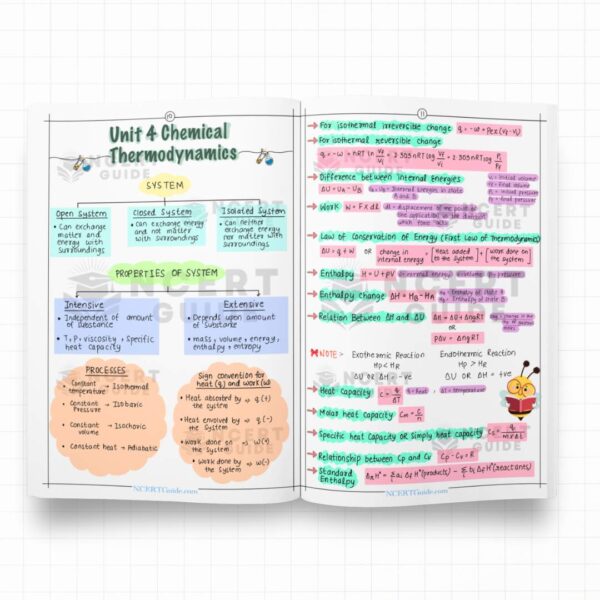 10
Unit 4 Chemical
Thermodynamics
SYSTEM
Open System
• Can exchange
matter and
energy with
surroundings
Closed System
• Can exchange energy
and not matter
with surroundings
Isolated System
• Can neither
exchange energy
nor matter with
surroundings
PROPERTIES OF SYSTEM
Intensive
• Independent of amount
of substance
• T, P, viscosity, specific
heat capacity
Extensive
• Depends upon amount
of substance
• mass, volume, energy,
enthalpy, entropy
PROCESSES
• Constant temperature → Isothermal
• Constant Pressure → Isobaric
• Constant volume → Isochoric
• Constant heat → Adiabatic
Sign convention for
heat (q) and work (w)
• Heat absorbed by the system → q (+)
• Heat envolved by the system → q (-)
• Work done on the system → w (+)
• Work done by the system → w (-)
NCERTGuide.com
11
→ For isothermal irreversible change q = -w = Pex (Vf - Vi)
→ For isothermal reversible change
q = -w = nRT ln Vf/Vi = 2.303 nRT log Vf/Vi = 2.303 nRT log Pi/Pf
Vi = Initial volume
Vf = Final volume
Pi = Initial pressure
Pf = Final pressure
→ Difference between Internal Energies
ΔU = UA - UB
→ Work W = F x dl
dl = displacement of the point of
the application in the direction
which force
→ Law of Conservation of Energy (First Law of Thermodynamics)
ΔU = q + w OR change in internal energy = [heat added to the system] + [work done on the system]
→ Enthalpy H = U + PV
→ Enthalpy change ΔH = HB - HA
→ Relation Between ΔH and ΔU ΔH = ΔU + ΔngRT
OR
PΔV = ΔngRT
NOTE :-
Exothermic Reaction
Hp < HR
ΔU or ΔH = -ve
Endothermic Reaction
Hp > HR
ΔU or ΔH = +ve
→ Heat Capacity C = q/ΔT q = heat, ΔT = temperature
→ Molar heat Capacity Cm = C/n
→ Specific heat Capacity or Simply heat capacity Cs = q/m×ΔT
→ Relationship between Cp and Cv Cp - Cv = R
→ Standard Enthalpy ΔrH° = Σ ai ΔfH°(products) - Σ bi ΔfH°(reactants)
NCERTGuide.com
NCERT
GUIDE